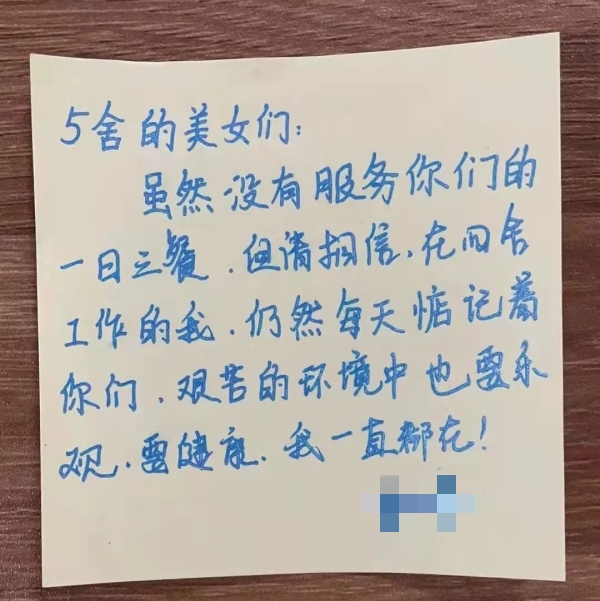 5舍的美女们:
虽然没有服务你们的
一日三餐，但请相信，在四舍
工作的我，仍然每天惦记着
你们，艰苦的环境中也要乐
观，要健康，我一直都在！